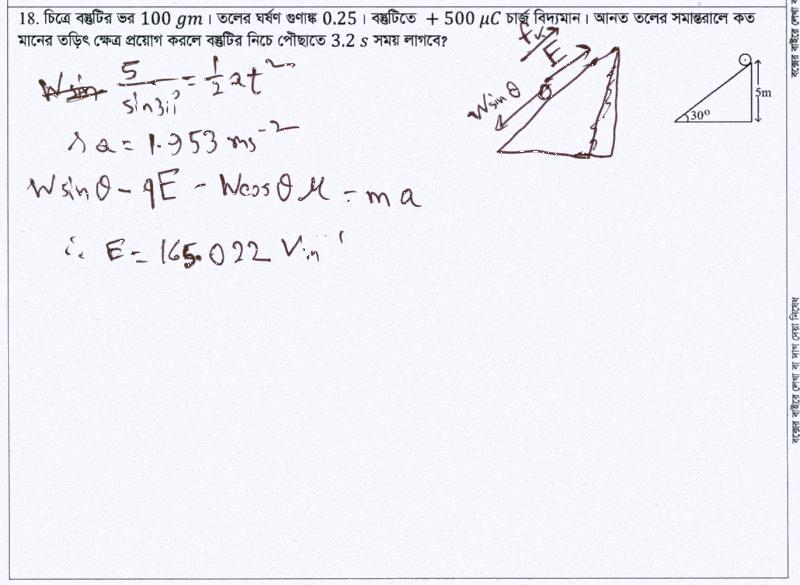 18. চিত্রে বস্তুটির ভর 100 gm। তলের ঘর্ষণ গুণাঙ্ক 0.25। বস্তুটিতে + 500 μC চার্জ বিদ্যমান। আনত তলের সমান্তরালে কত
মানের তড়িৎ ক্ষেত্র প্রয়োগ করলে বস্তুটির নিচে পৌছাতে 3.2 s সময় লাগবে?
5/sin30° = 1/2 at²
a = 1.953 ms⁻²
W sinθ - qE - Wcosθ μ = ma
∴ E = 165.022 Vm⁻¹
fk
E
W sin θ
5m
30°
বক্সের বাইরে লেখা বা দাগ দেয়া নিষেধ